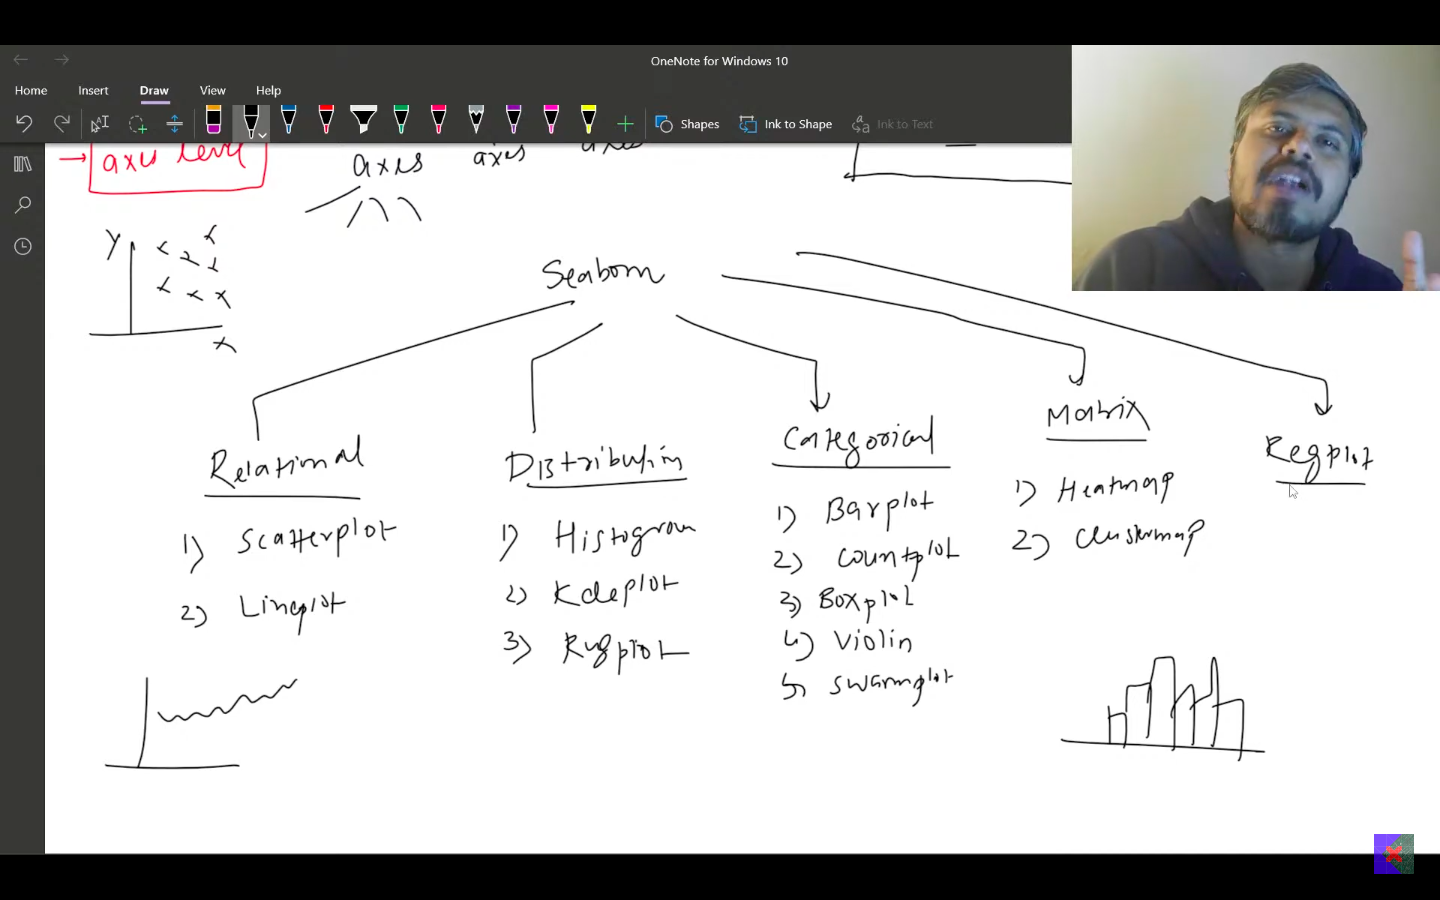 OneNote for Windows 10
Home Insert Draw View Help
Shapes Ink to Shape Ink to Text
→ axes level
axes axes axes
y
x
Seaborn
Relational
1) Scatterplot
2) Lineplot
Distribution
1) Histogram
2) Kdeplot
3) Rugplot
Categorical
1) Barplot
2) Countplot
3) Boxplot
4) Violin
5) Swarmplot
Matrix
1) Heatmap
2) Clustermap
Regplot